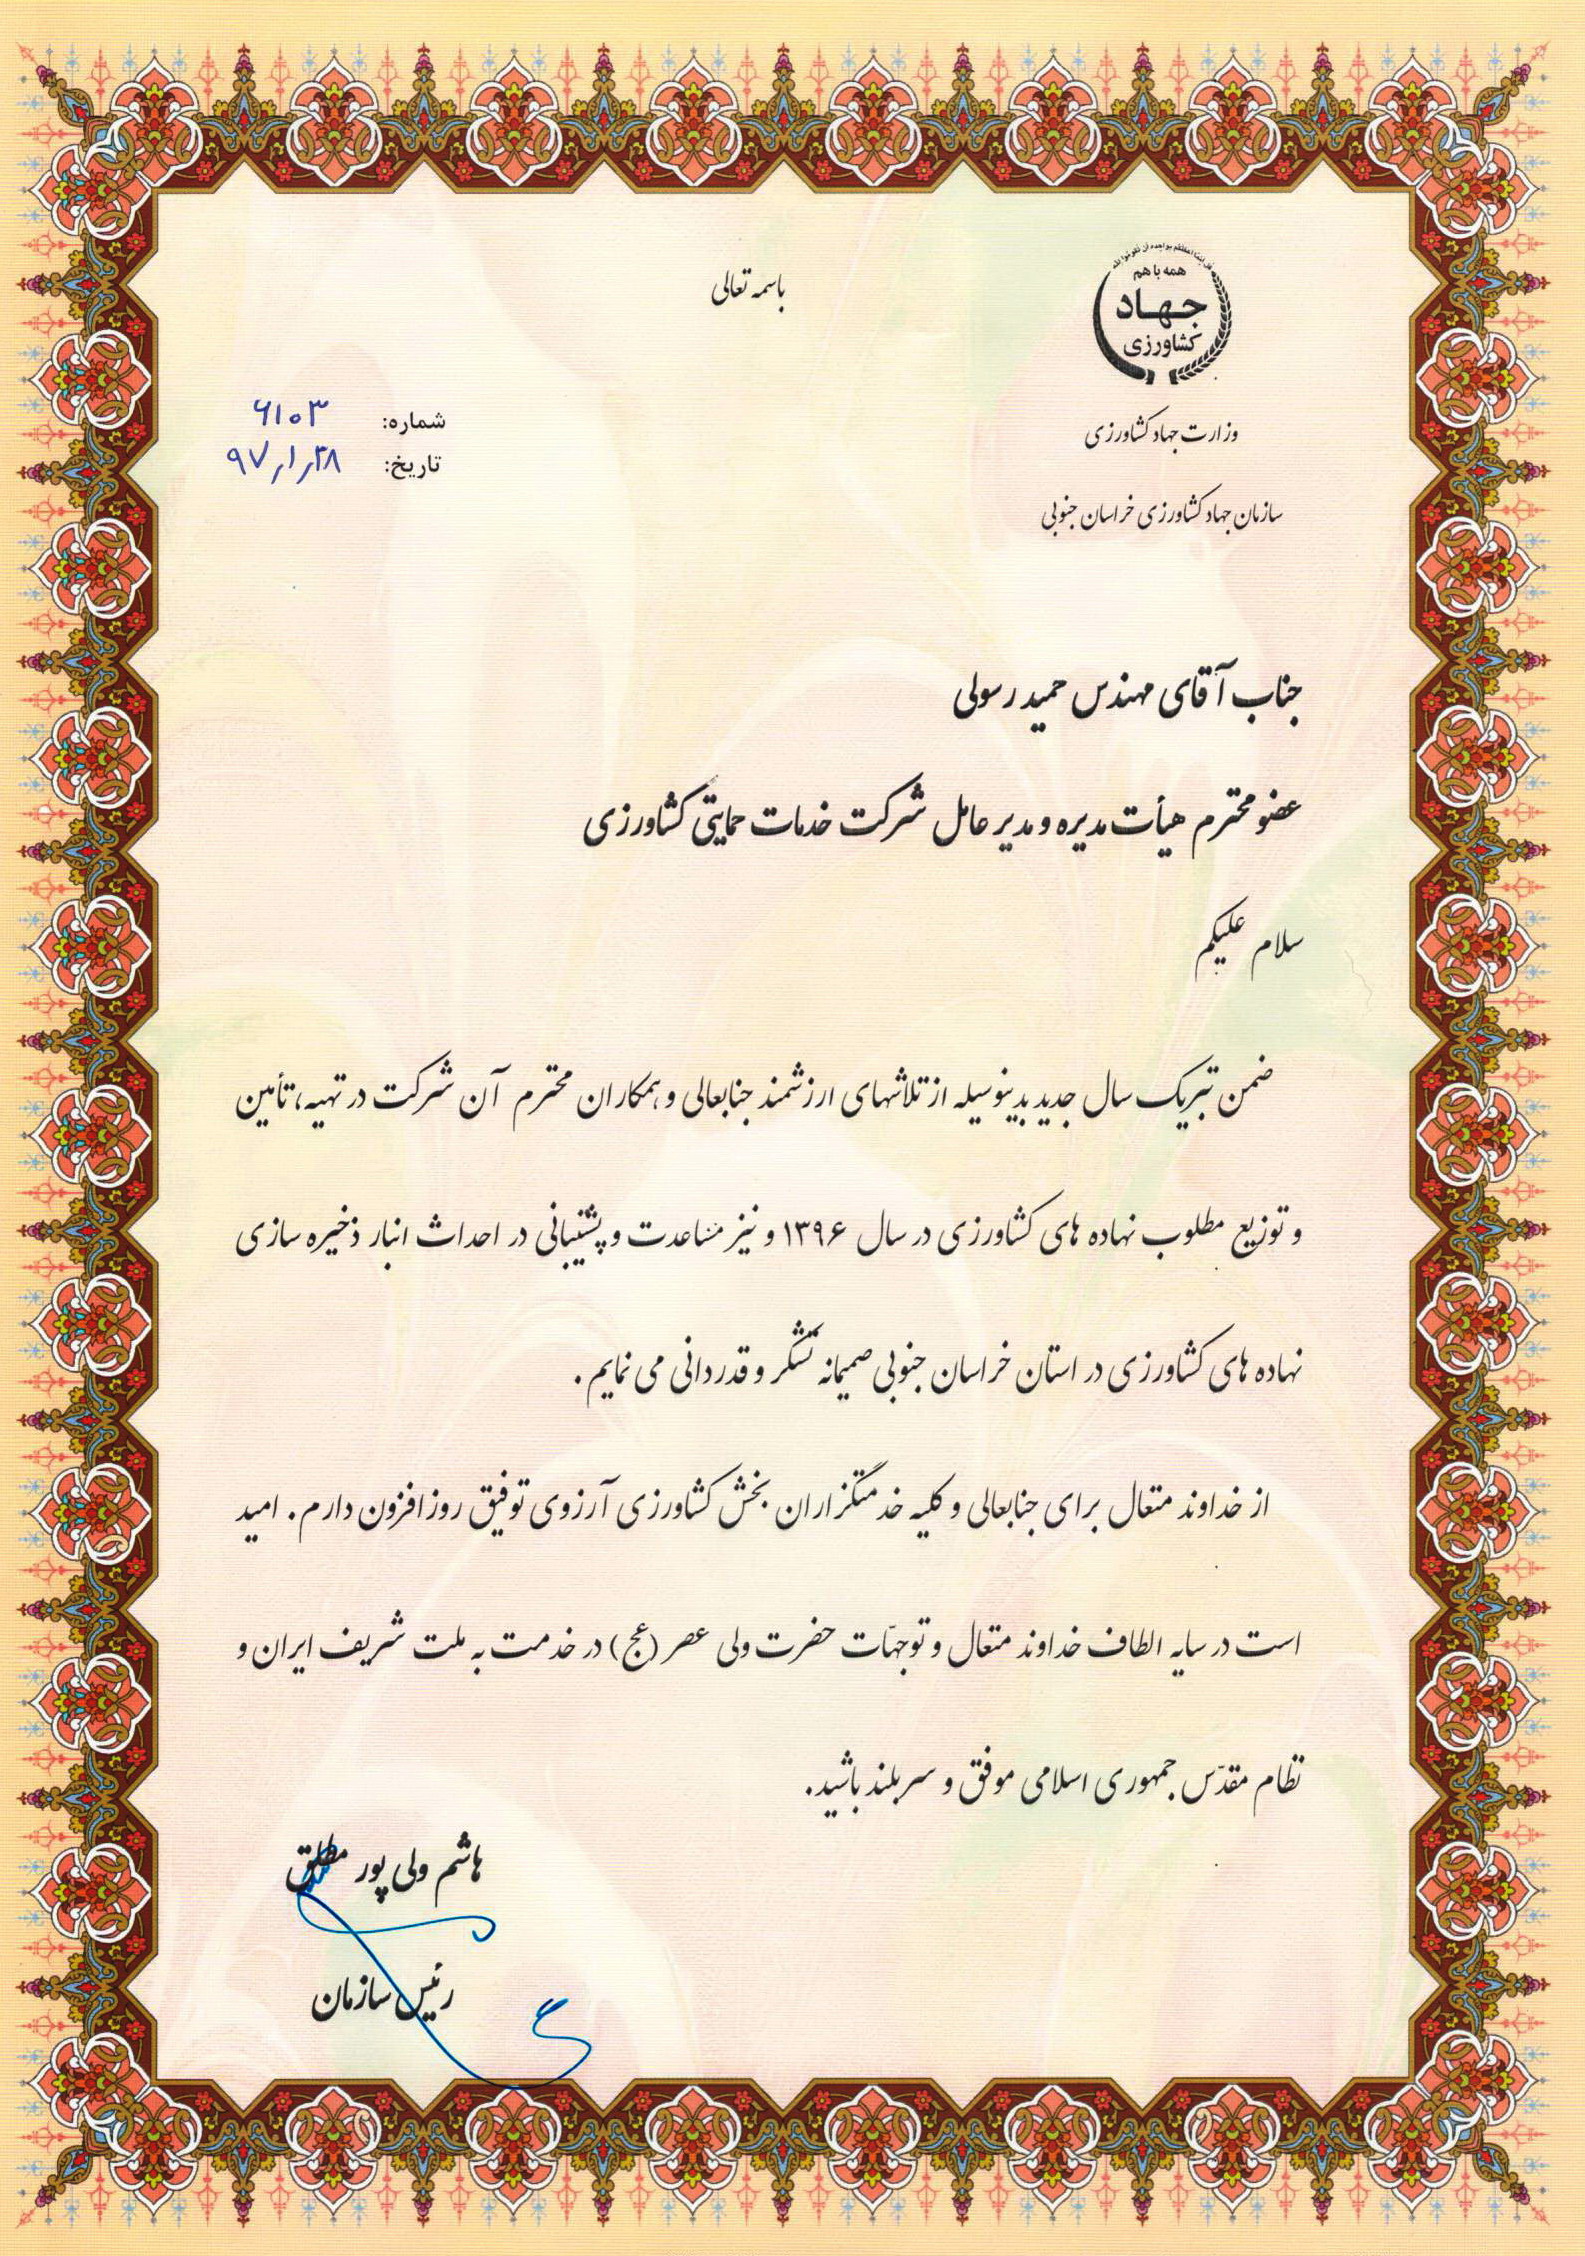 باسمه تعالی
قل انما اعظکم بواحده ان تقوموا لله
همه با هم
جهاد
کشاورزی
وزارت جهاد کشاورزی
سازمان جهاد کشاورزی خراسان جنوبی
شماره: ۶۱۰۳
تاریخ: ۹۷/۱/۲۸
جناب آقای مهندس حمید رسولی
عضو محترم هیأت مدیره و مدیر عامل شرکت خدمات حمایتی کشاورزی
سلام علیکم
ضمن تبریک سال جدید بدینوسیله از تلاشهای ارزشمند جنابعالی و همکاران محترم آن شرکت در تهیه، تأمین
و توزیع مطلوب نهاده های کشاورزی در سال ۱۳۹۶ و نیز مساعدت و پشتیبانی در احداث انبار ذخیره سازی
نهاده های کشاورزی در استان خراسان جنوبی صمیمانه تشکر و قدردانی می نمایم.
از خداوند متعال برای جنابعالی و کلیه خدمتگزاران بخش کشاورزی آرزوی توفیق روز افزون دارم. امید
است در سایه الطاف خداوند متعال و توجهّات حضرت ولی عصر (عج) در خدمت به ملت شریف ایران و
نظام مقدّس جمهوری اسلامی موفق و سربلند باشید.
هاشم ولی پور مطلق
رئیس سازمان